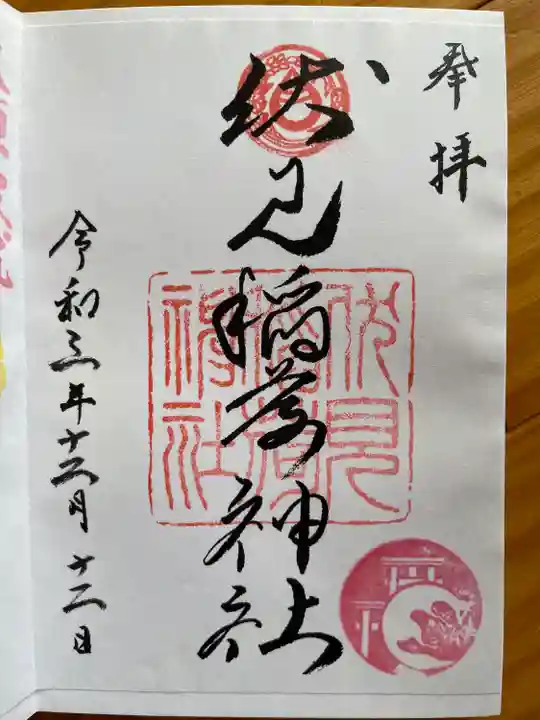 奉拝
伏見稲荷神社
令和三年十二月十二日
伏見
稲荷
神社